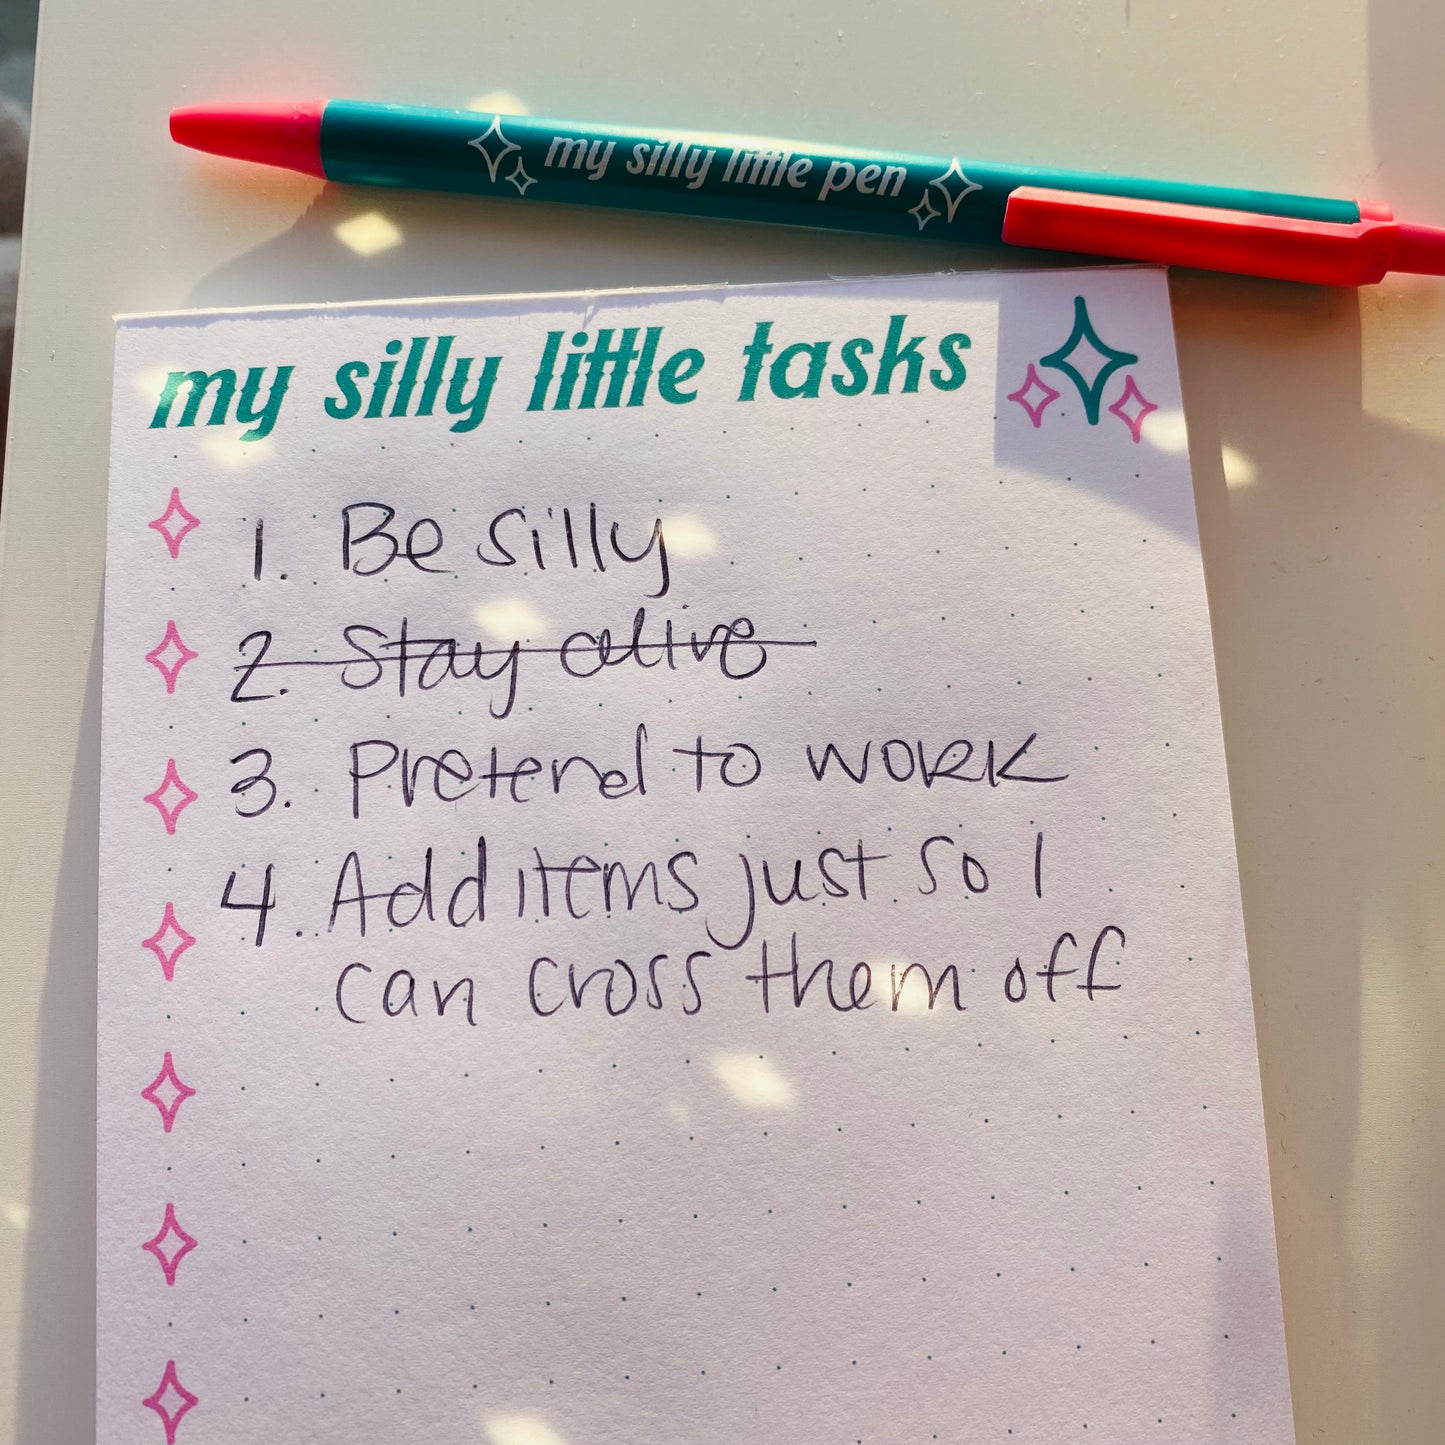 my silly little pen
my silly little tasks
1. Be silly
2. Stay alive
3. Pretend to work
4. Add items just so I
can cross them off